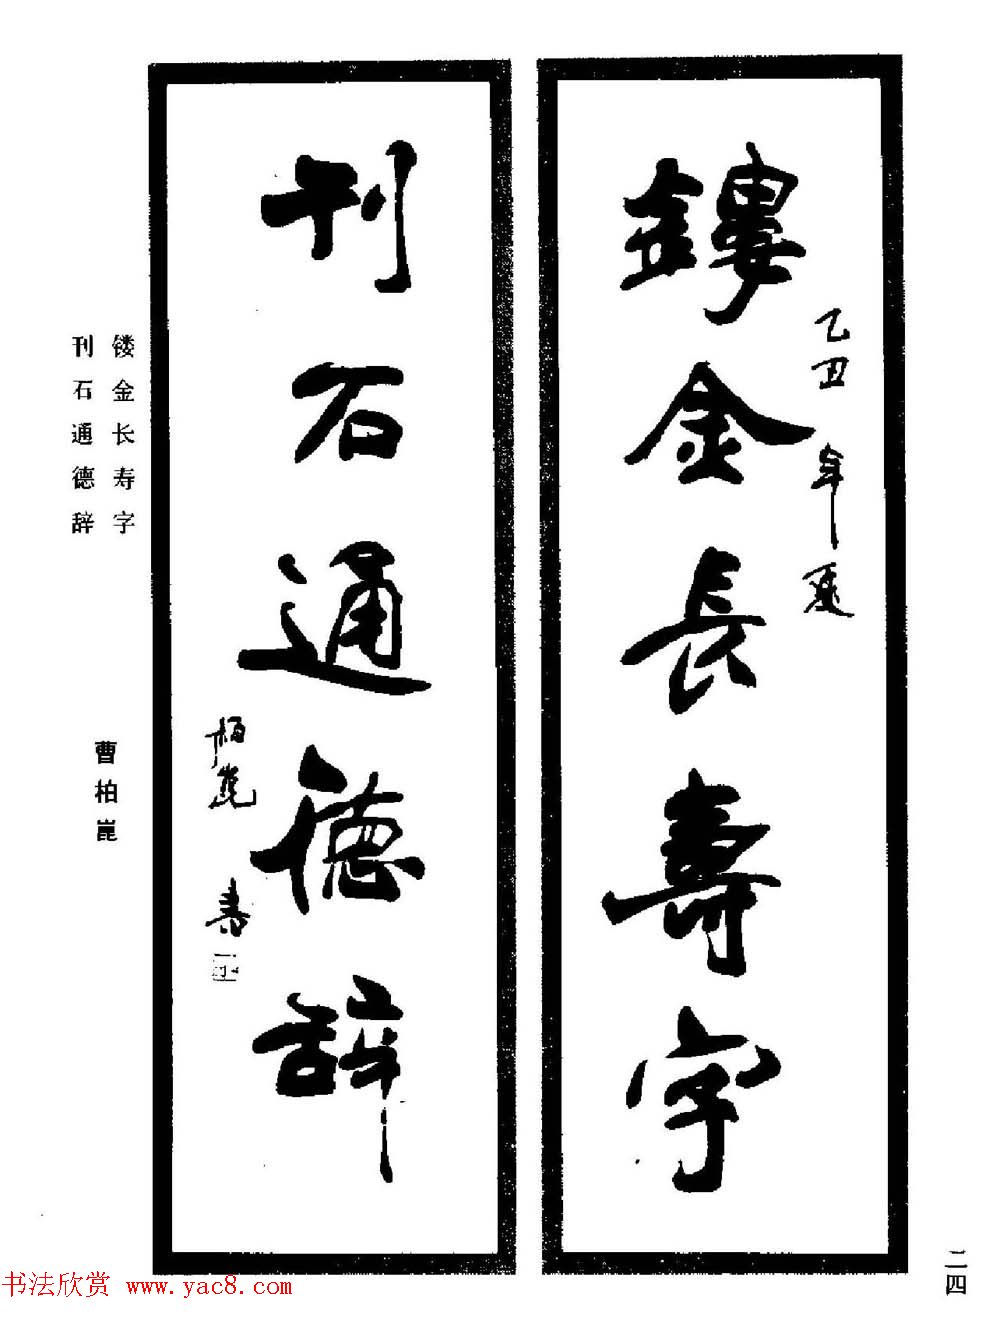 鏤金長壽字
乙丑年夏
刊石通德辭
柏崑書
镂金长寿字
刊石通德辞
曹柏崑
二四
书法欣赏 www.yac8.com